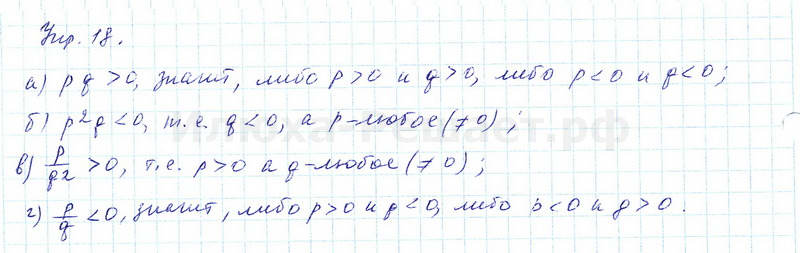 Упр. 18.
а) pq >0, значит, либо p>0 и q>0, либо p<0 и q<0;
б) p²q <0, т.е. q<0, а p-любое (≠0);
Илюха-Решает.рф
в) p/q² >0, т.е. p>0 а q-любое (≠0);
г) p/q <0, значит, либо p>0 и q<0, либо p<0 и q>0.